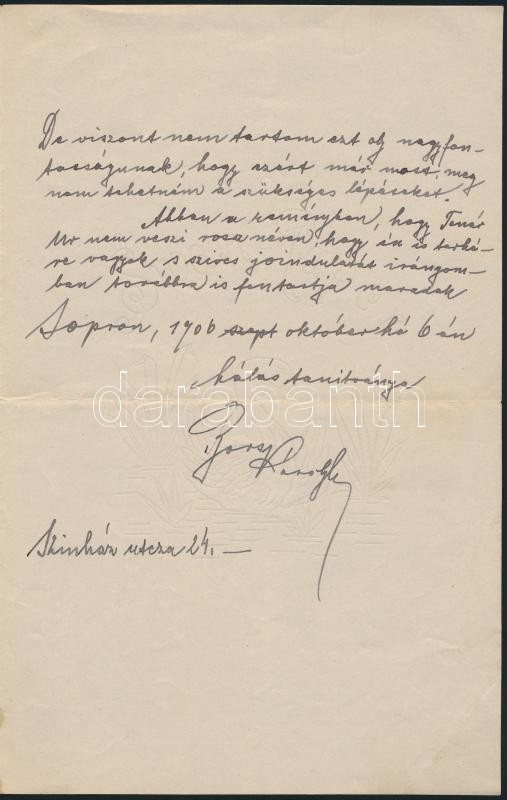 De viszont nem tartom ezt oly nagyfon-
tosságunak, hogy ezért már most, meg
nem tehetném a szükséges lépéseket.
Abban a reményben, hogy Tanár
Ur nem veszi rosz néven, hogy én is terhé-
re vagyok s szives joindulatát irányom-
ban továbbra is fentartja maradok
Sopron, 1906 szept október hó 6 án
hálás tanitványa
darabanth
Károly
Szinház utcza 24. —